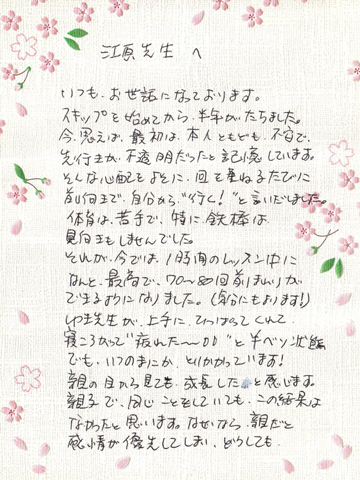 江原先生へ
いつも、お世話になっております。
スキップを始めてから、半年がたちました。
今、思えば、最初は、本人ともども、不安で、
先行きが、不透明だったと記憶しています。
そんな心配をよそに、回を重ねるたびに
前向きで、自分から"行く!"と言いだしました。
体育は、苦手で、特に、鉄棒は
見向きもしませんでした。
それが、今では、1時間のレッスン中に
なんと、最高で、70〜80回前まわりが
できるようになりました。
先生が、上手に、ひっぱってくれて
寝ころがって"疲れた〜"と半ベソ状態
でも、いつのまにか、とりかかっています!
親の目から見ても、成長したと感じます。
親子で、同じことをしていても、この結果は
なかったと思います。なぜなら、親だと
感情が優先してしまい、どうしても、